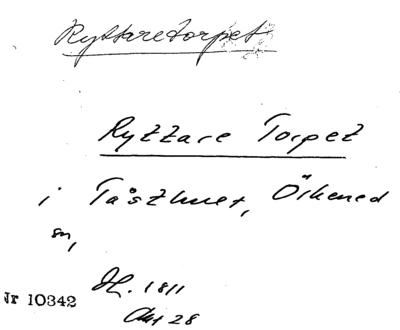 Ryttaretorpet
Ryttare Torpet
i Tåsthult, Örkened
sn,
JH. 1811
Akt 28
Nr 10342